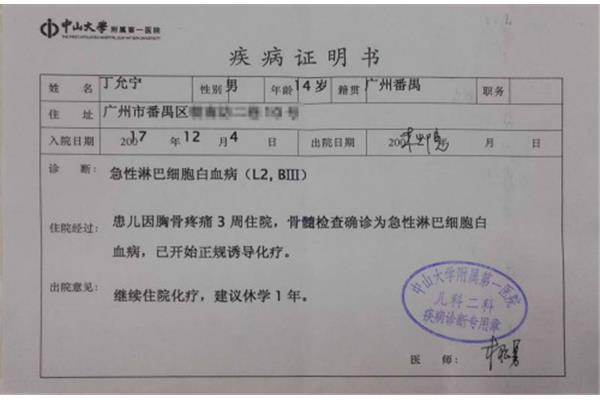 中山大学 附属第一医院
THE FIRST AFFILIATED HOSPITAL, SUN YAT-SEN UNIVERSITY
疾病证明书
姓名 丁允宁 性别 男 年龄 14岁 籍贯 广州番禺 职务
住址 广州市番禺区
入院日期 200 17 年 12 月 4 日 出院日期 200 年 月 日
诊断: 急性淋巴细胞白血病(L2, BIII)
住院经过: 患儿因胸骨疼痛 3 周住院,骨髓检查确诊为急性淋巴细胞白
血病,已开始正规诱导化疗。
出院意见: 继续住院化疗,建议休学 1 年。
中山大学附属第一医院
儿科二科
疾病诊断专用章
医师: